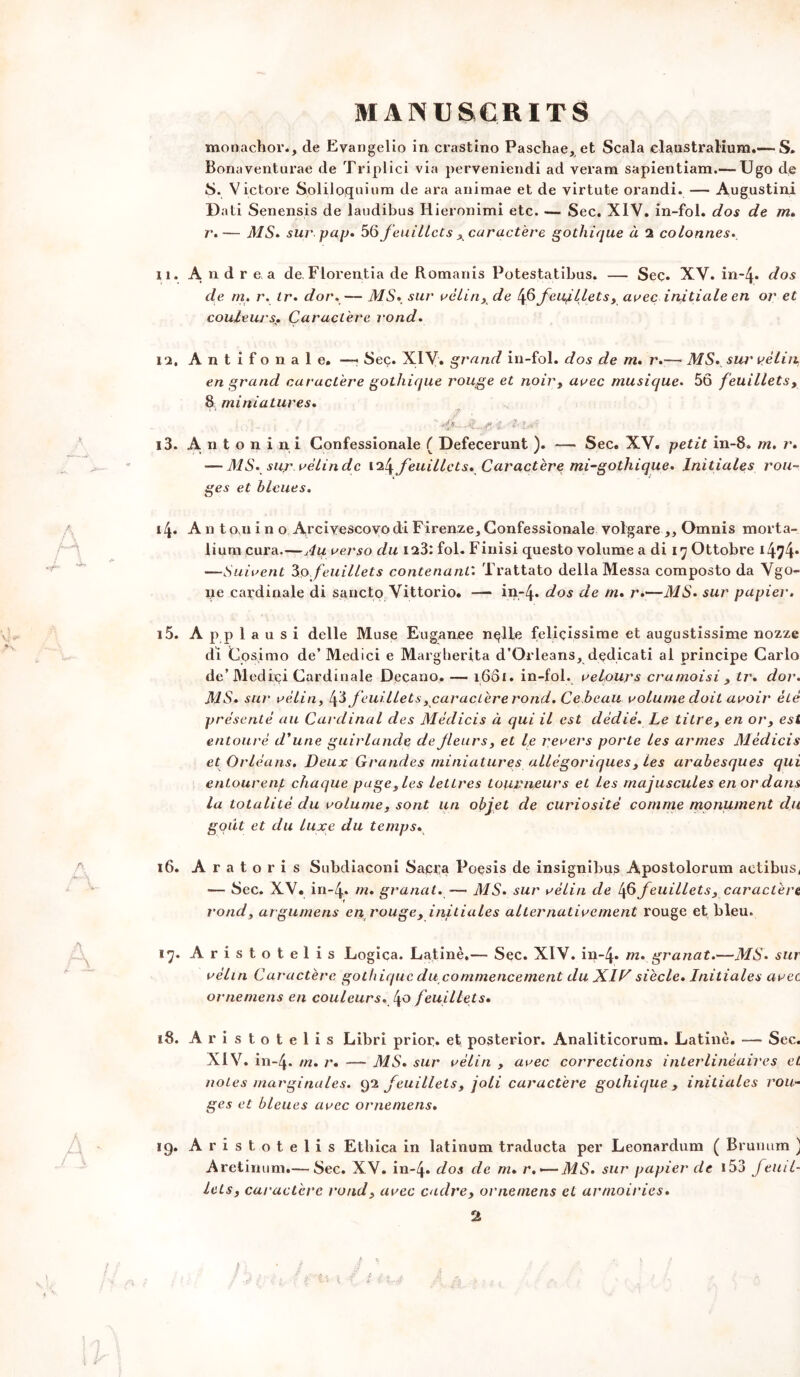 MANUSCRITS
monachor., de Evangelio in crastino Paschae, et Scala claustralium.— S.
Bonaventurae de Triplici via perveniendi ad veram sapientiam.— Ugo de
S. Victore Soliloquium de ara animae et de virtute orandi. — Augustini
Dati Senensis de laudibus Hieronimi etc. — Sec. XIV. in-fol. dos de m.
r. — MS. sur pap. 56 feuillets, caractère gothique à 2 colonnes.
11. Andrea de Florentia de Romanis Potestatibus. — Sec. XV. in-4. dos
de m. r. tr. dor. — MS. sur vélin, de 46 feuillets, avec initiale en or et
couleurs. Caractère rond.
12. Antifonale. — Sec. XIV. grand in-fol. dos de m. r.— MS. sur vélin
en grand caractère gothique rouge et noir, avec musique. 56 feuillets,
8 miniatures.
13. Antonini Confessionale ( Defecerunt ). — Sec. XV. petit in-8. m. r.
— MS. sur vélin de 124 feuillets. Caractère mi-gothique. Initiales rou-
ges et bleues.
14. Antonino Arcivescovo di Firenze, Confessionale volgare ,, Omnis morta-
lium cura.—Au verso du 123: fol. Finisi questo volume a di 17 Ottobre 1474.
—Suivent 30 feuillets contenant: Trattato della Messa composto da Vgo-
ne cardinale di sancto Vittorio. — in-4. dos de m. r.—MS. sur papier.
15. Applausi delle Muse Euganee nelle feliçissime et augustissime nozze
di Cosimo de' Medici e Margherita d'Orleans, dedicati al principe Carlo
de' Mediçi Cardinale Decano. — 1661. in-fol. velours cramoisi, tr. dor.
MS. sur vélin, 43 feuillets, caractère rond. Ce beau volume doit avoir été
présenté au Cardinal des Médicis à qui il est dédié. Le titre, en or, est
entouré d'une guirlande de fleurs, et le revers porte les armes Médicis
et Orléans. Deux Grandes miniatures allégoriques, les arabesques qui
entourent chaque page, les lettres tourneurs et les majuscules en or dans
la totalité du volume, sont un objet de curiosité comme monument du
goût et du luxe du temps.
16. Aratoris Subdiaconi Sacra Poesis de insignibus Apostolorum actibus,
— Sec. XV. in-4. m. granat. — MS. sur vélin de 46 feuillets, caractère
rond, argumens en rouge, initiales alternativement rouge et bleu.
17. Aristotelis Logica. Latinè.— Sec. XIV. in-4. m. granat.—MS. sur
vélin Caractère gothique du commencement du XIV siècle. Initiales avec
ornemens en couleurs. 40 feuillets.
18. Aristotelis Libri prior. et posterior. Analiticorum. Latinè. — Sec.
XIV. in-4. m. r. — MS. sur vélin , avec corrections interlinéaires et
notes marginales. 92 feuillets, joli caractère gothique, initiales rou-
ges et bleues avec ornemens.
19. Aristotelis Ethica in latinum traducta per Leonardum ( Brunum )
Aretinum.— Sec. XV. in-4. dos de m. r.—MS. sur papier de 153 feuil-
lets, caractère rond, avec cadre, ornemens et armoiries.
2